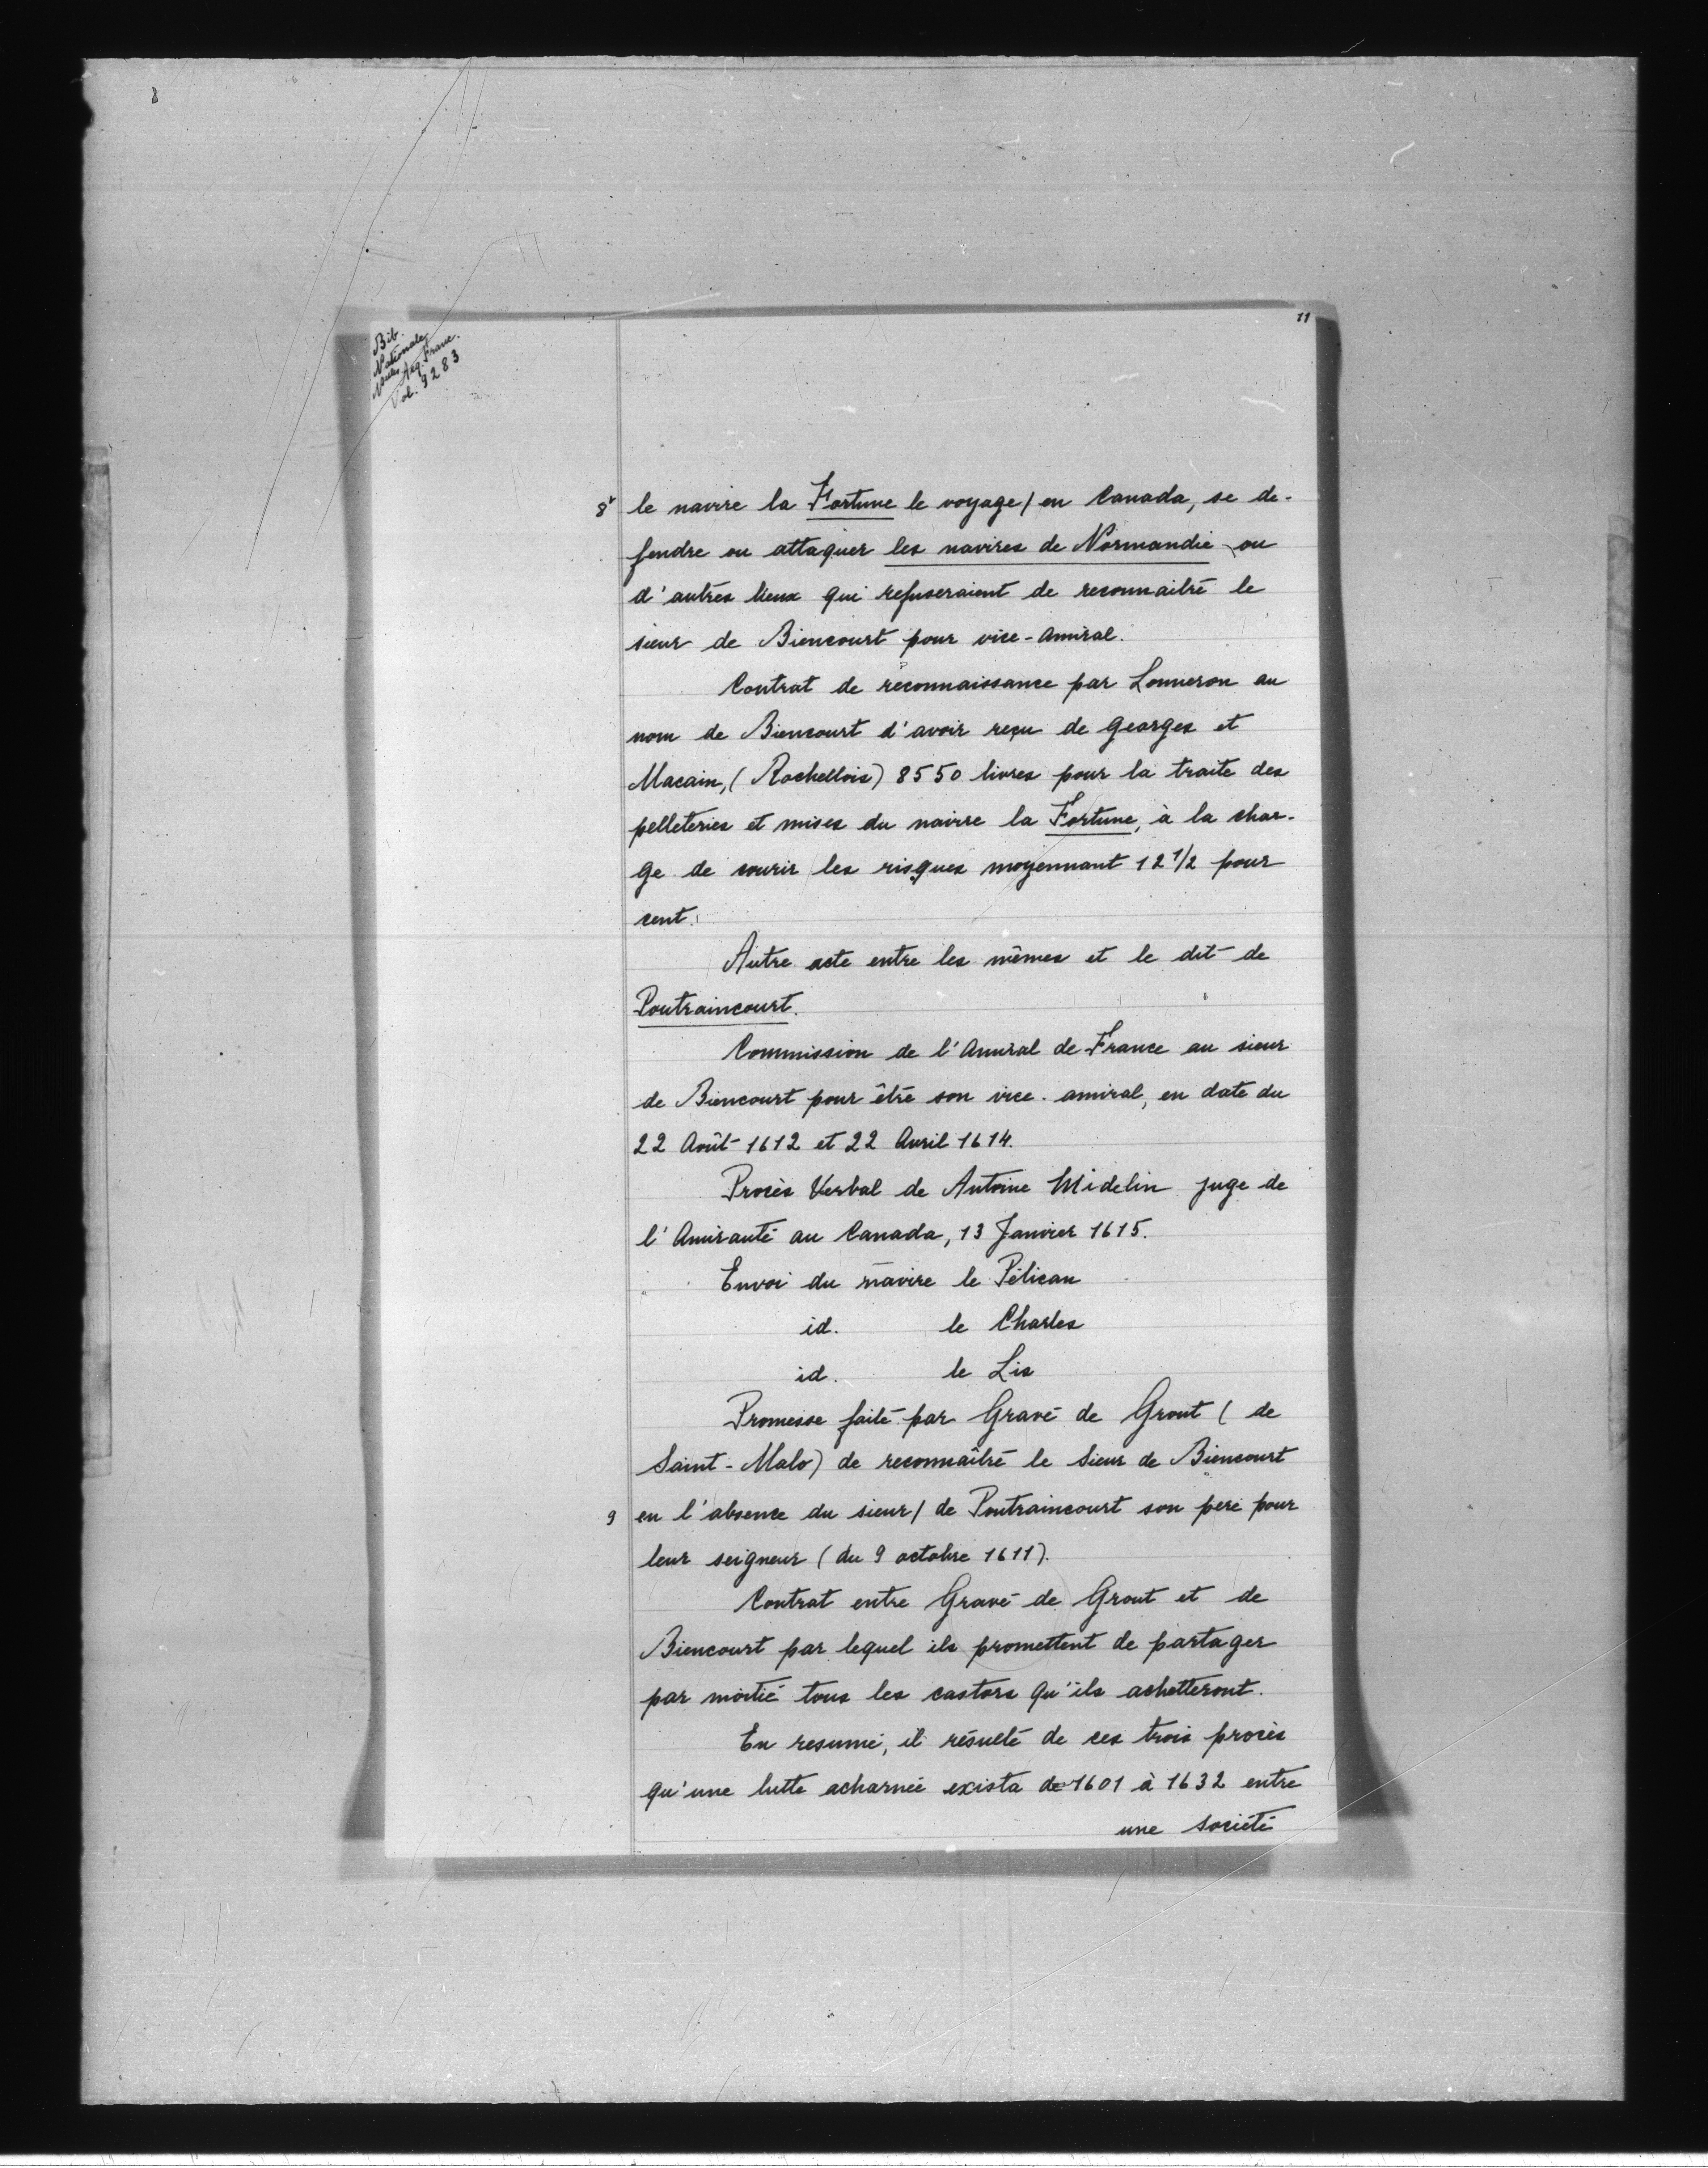 11
Bib.
Nationale
Acq. Franc.
Vol. 9283
8v le navire la Fortune le voyage/ en Canada, se de-
fendre ou attaquer les navires de Normandie ou
d'autres lieux qui refuseraient de reconnaitre le
sieur de Biencourt pour vice-Amiral.
Contrat de reconnaissance par Lomeron au
nom de Biencourt d'avoir reçu de Georges et
Macain, (Rochellois) 8550 livres pour la traite des
pelleteries et mises du navire la Fortune, à la char-
ge de courir les risques moyennant 12 1/2 pour
cent.
Autre acte entre les mêmes et le dit de
Poutraincourt.
Commission de l'Amiral de France au sieur
de Biencourt pour être son vice-amiral, en date du
22 Août 1612 et 22 Avril 1614.
Procès Verbal de Antoine Midelin juge de
l'Amirauté au Canada, 13 Janvier 1615.
Envoi du navire le Pélican
id. le Charles
id. le Lis
Promesse faite par Gravé de Grout (de
Saint-Malo) de reconnaître le Sieur de Biencourt
9 en l'absence du sieur/ de Poutraincourt son pere pour
leur seigneur (du 9 octobre 1611).
Contrat entre Gravé de Grout et de
Biencourt par lequel ils promettent de partager
par moitié tous les castors qu'ils achetteront.
En resumé, il résulte de ces trois procès
qu'une lutte acharnée exista de 1601 à 1632 entre
une société